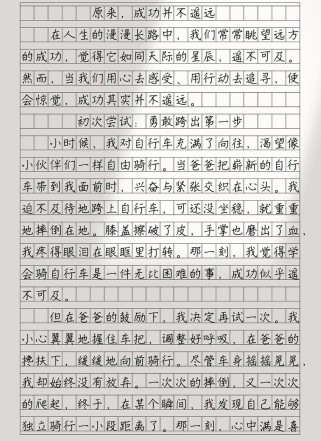 原来，成功并不遥远
在人生的漫漫长路中，我们常常眺望远方
的成功，觉得它如同天际的星辰，遥不可及。
然而，当我们用心去感受、用行动去追寻，便
会惊觉，成功其实并不遥远。
初次尝试：勇敢跨出第一步
小时候，我对自行车充满了向往，渴望像
小伙伴们一样自由骑行。当爸爸把崭新的自行
车带到我面前时，兴奋与紧张交织在心头。我
迫不及待地跨上自行车，可还没坐稳，就重重
地摔倒在地。膝盖擦破了皮，手掌也磨出了血，
我疼得眼泪在眼眶里打转。那一刻，我觉得学
会骑自行车是一件无比困难的事，成功似乎遥
不可及。
但在爸爸的鼓励下，我决定再试一次。我
小心翼翼地握住车把，调整好呼吸，在爸爸的
搀扶下，缓缓地向前骑行。尽管车身摇摇晃晃，
我却始终没有放弃。一次次的摔倒，又一次次
的爬起，终于，在某个瞬间，我发现自己能够
独立骑行一小段距离了。那一刻，心中满是喜